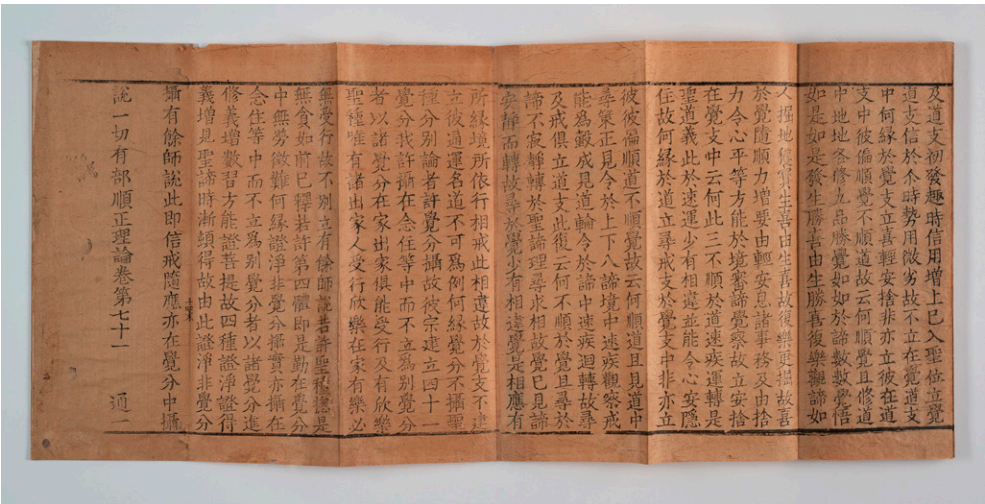 及道支初發趣時信用增上已入聖位立覺
道支信於尒時勢用微劣故不立在覺道支
中何緣於覺支立喜輕安捨非亦立彼在道
支中彼偏順覺不順道故云何順覺且修道
中地地各修九品勝覺如如於諦數數覺悟
如是如是發生勝喜由生勝喜復樂觀諦如
人掘地獲寶生喜由生喜故復樂更掘故喜
於覺隨順力增要由輕安息諸事務及由捨
力令心平等方能於境審諦覺察故立安捨
在覺支中云何此三不順於道速疾運轉是
聖道義此於速運少有相違並能令心安隱
住故何緣於道立尋戒支於覺支中非亦立
彼彼偏順道不順覺故云何順道且見道中
尋策正見令於上下八諦境中速疾觀察戒
能為轂成見道輪令於諦中速疾迴轉故尋
及戒俱立道支此復云何不順於覺且尋於
諦不寂靜轉於聖諦理尋求相故覺已見諦
安靜而轉故尋於覺少有相違覺是相應有
所緣境所依行相戒此相違故於覺支不建
立彼通運名道不可為例何緣覺分不攝聖
種分別論者許覺分攝故彼宗建立四十一
覺分我許攝在念住等中而不立為別覺分
者以諸覺分在家出家俱能受行及有欣樂
聖種唯有諸出家人受行欣樂在家有樂必
無受行故不別立有餘師說若許聖種總是
無貪如前已釋若許第四體即是勤在覺分
中無勞徵難何緣證淨非覺分攝實亦攝在
念住等中而不立為別覺分者以諸覺分進
修義增數習方能證菩提故四種證淨證得
義增見聖諦時漸頓得故由此證淨非覺分
攝有餘師說此即信戒隨應亦在覺分中攝
說一切有部順正理論卷第七十一 通一